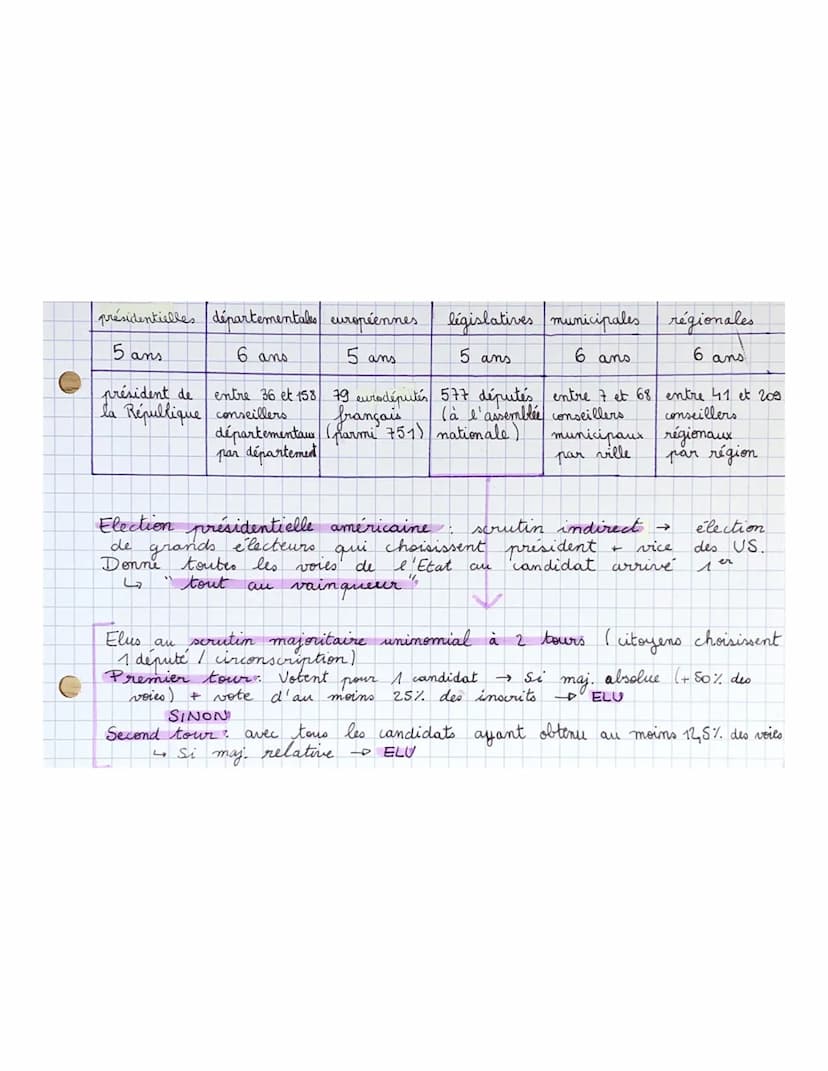 présidentielles départementales européennes législatives municipales régionales
5 ans 6 ans 5 ans 5 ans 6 ans 6 ans
président de entre 36 et 158 79 eurodéputés 577 députés entre 7 et 68 entre 41 et 209
la République conseillers français (à l'assemblée conseillers conseillers
départementaux (parmi 751) nationale) municipaux régionaux
par département par ville par région
Election présidentielle américaine : scrutin indirect → élection
de grands électeurs qui choisissent président + vice des US.
Donne toutes les voies de l'Etat au candidat arrivé 1er
↳ "tout au vainqueur"
Elus au scrutin majoritaire uninomial à 2 tours (citoyens choisissent
1 député / circonscription)
Premier tour : Votent pour 1 candidat → Si maj. absolue (+ 50% des
voies) + vote d'au moins 25% des inscrits → ELU
SINON
Second tour : avec tous les candidats ayant obtenu au moins 12,5% des voies
↳ Si maj. relative → ELU